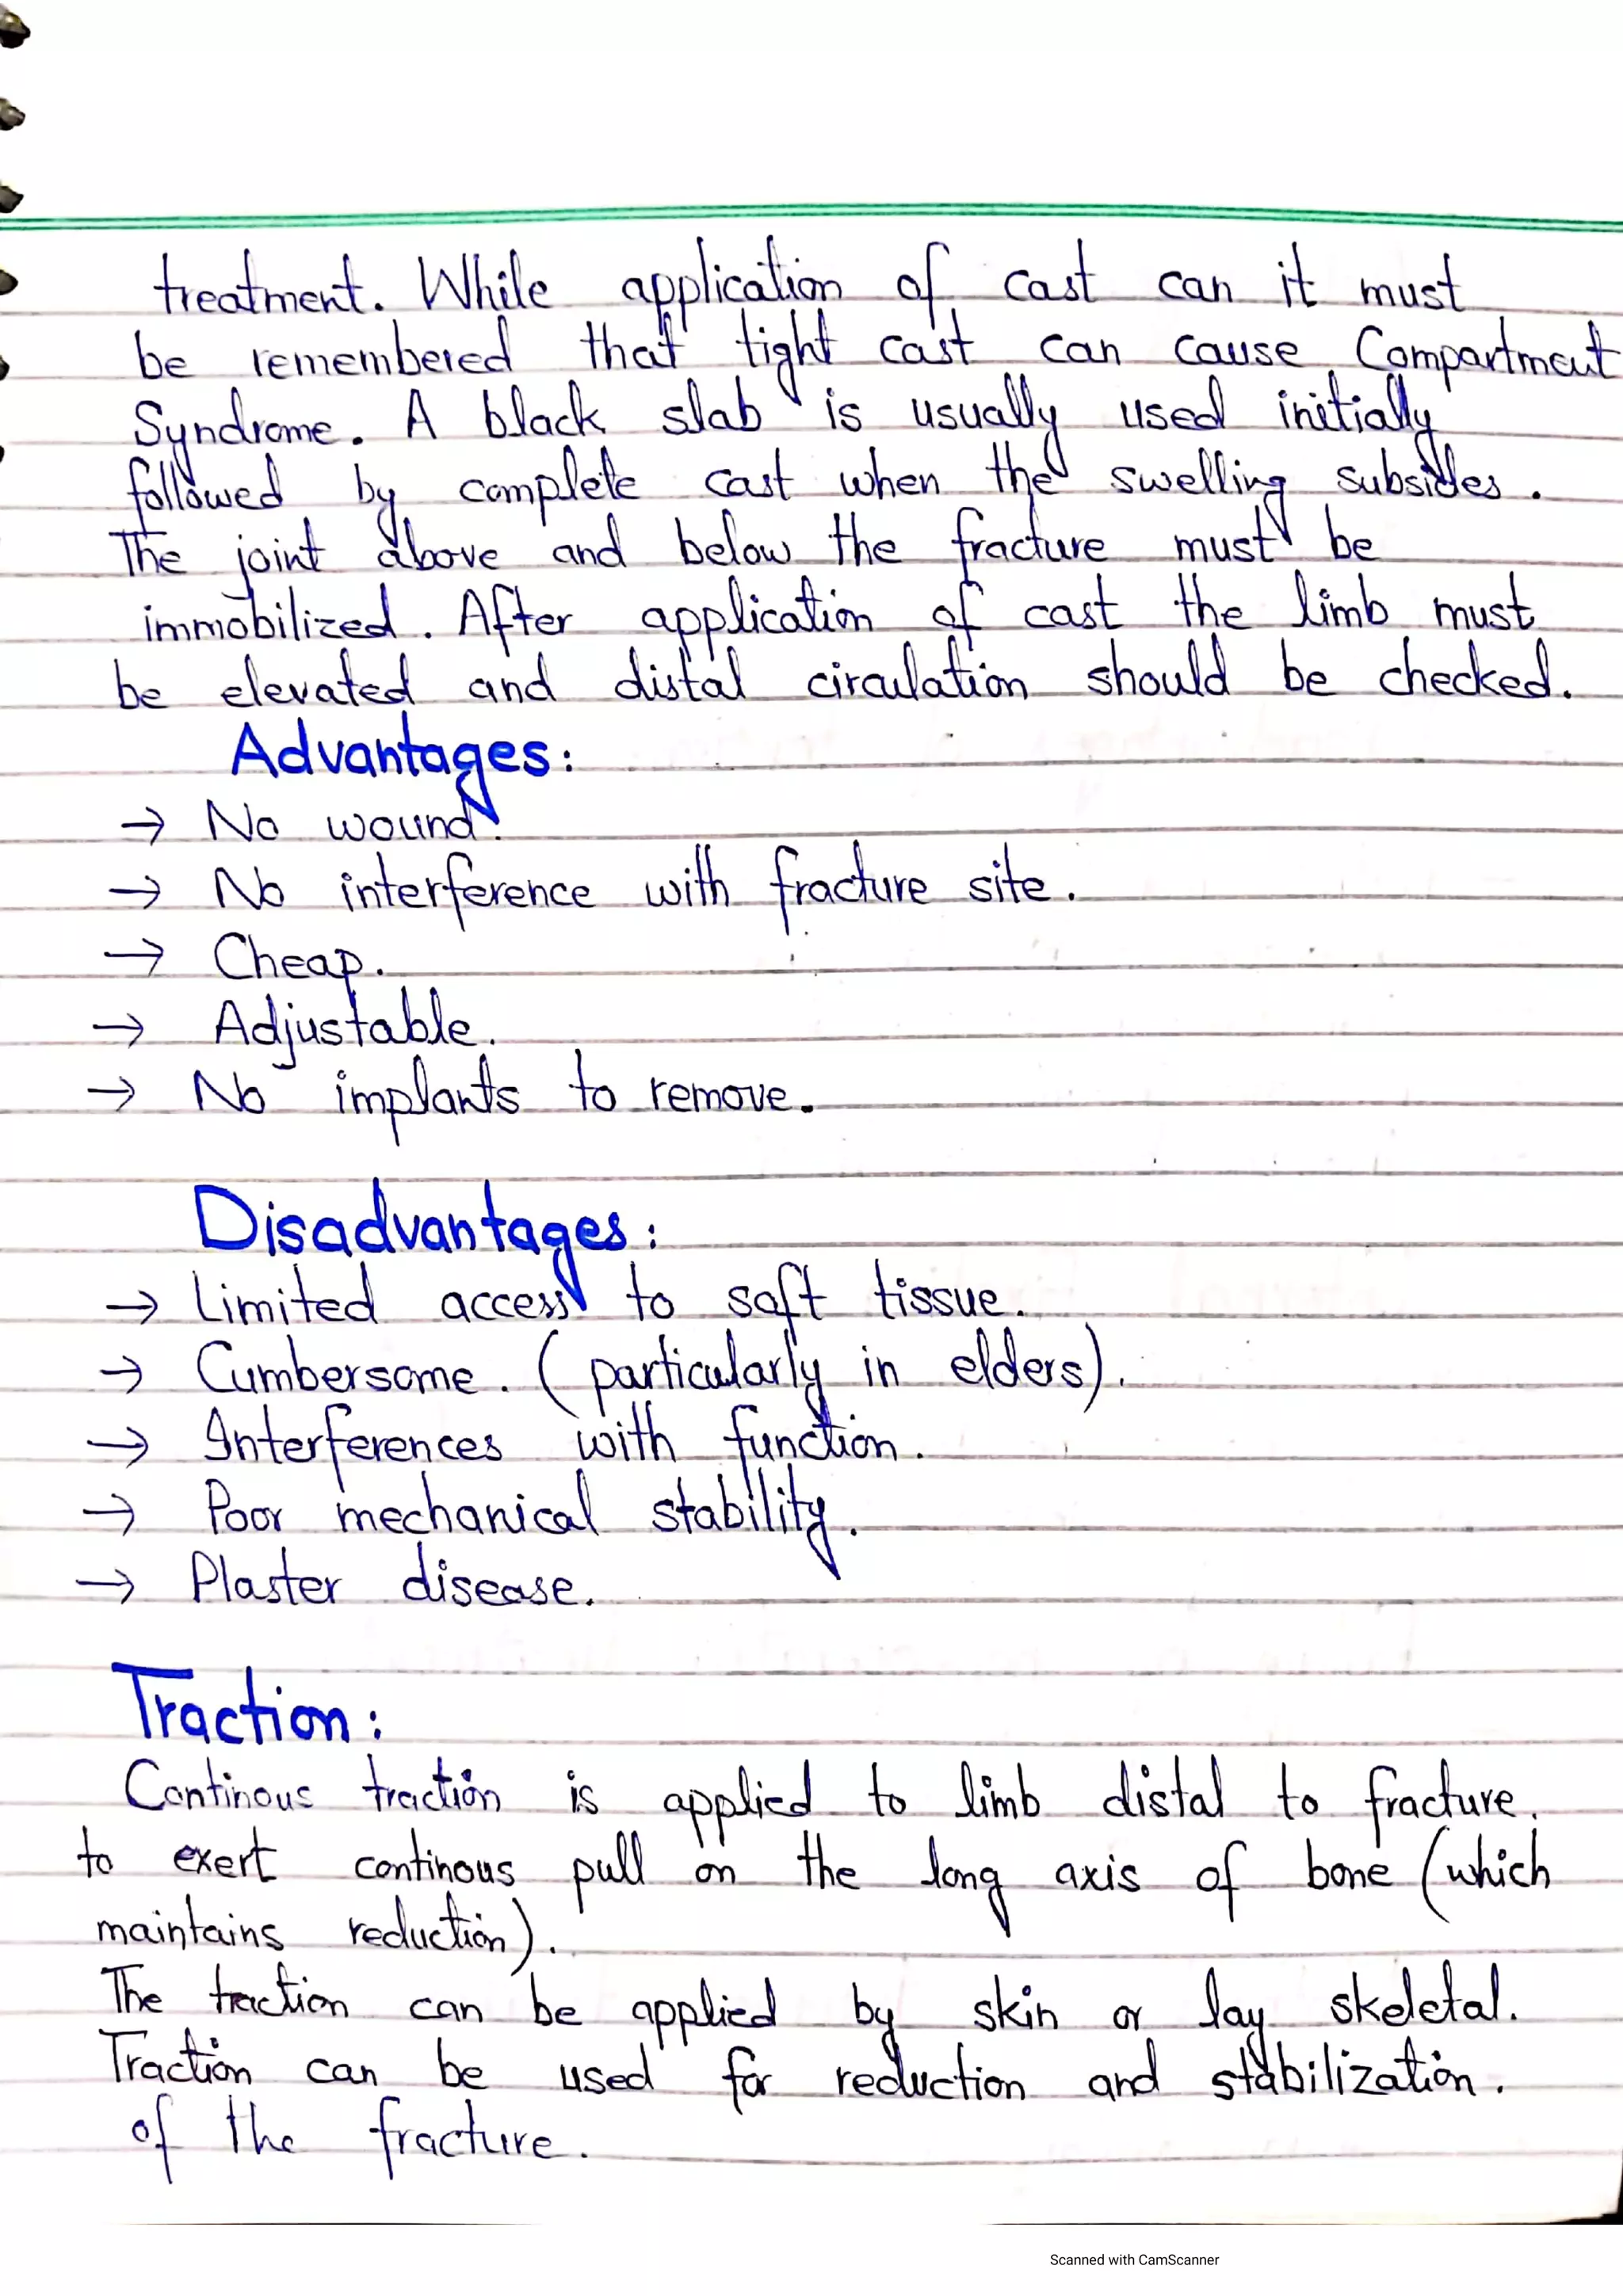 treatment. While application of cast can it must
be remembered that tight cast can cause Compartment
Syndrome. A black slab is usually used initially
followed by complete cast when the swelling subsides.
The joint above and below the fracture must be
immobilized. After application of cast the limb must
be elevated and distal circulation should be checked.
Advantages:
→ No wound.
→ No interference with fracture site.
→ Cheap.
→ Adjustable.
→ No implants to remove.
Disadvantages:
→ Limited access to soft tissue.
→ Cumbersome. (particularly in elders).
→ Interferences with function.
→ Poor mechanical stability.
→ Plaster disease.
Traction:
Continous traction is applied to limb distal to fracture.
to exert continous pull on the long axis of bone (which
maintains reduction).
The traction can be applied by skin or lay skeletal.
Traction can be used for reduction and stabilization.
of the fracture.
Scanned with CamScanner